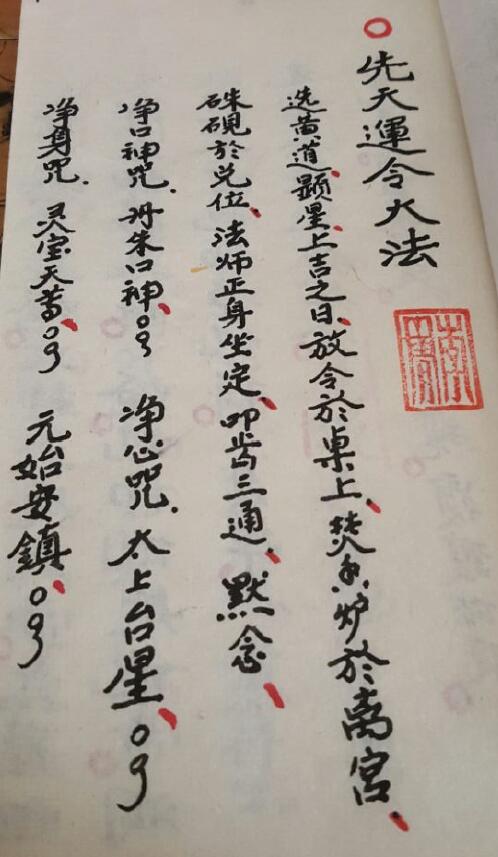 先天運令大法
选黄道、顕星、上吉之日、放令於桌上、焚香炉於离宫、
硃硯於兑位、法师正身坐定、叩齿三通、默念、
净口神咒、丹朱口神、净心咒、太上台星、
净身咒、灵宝天尊、元始安鎮、